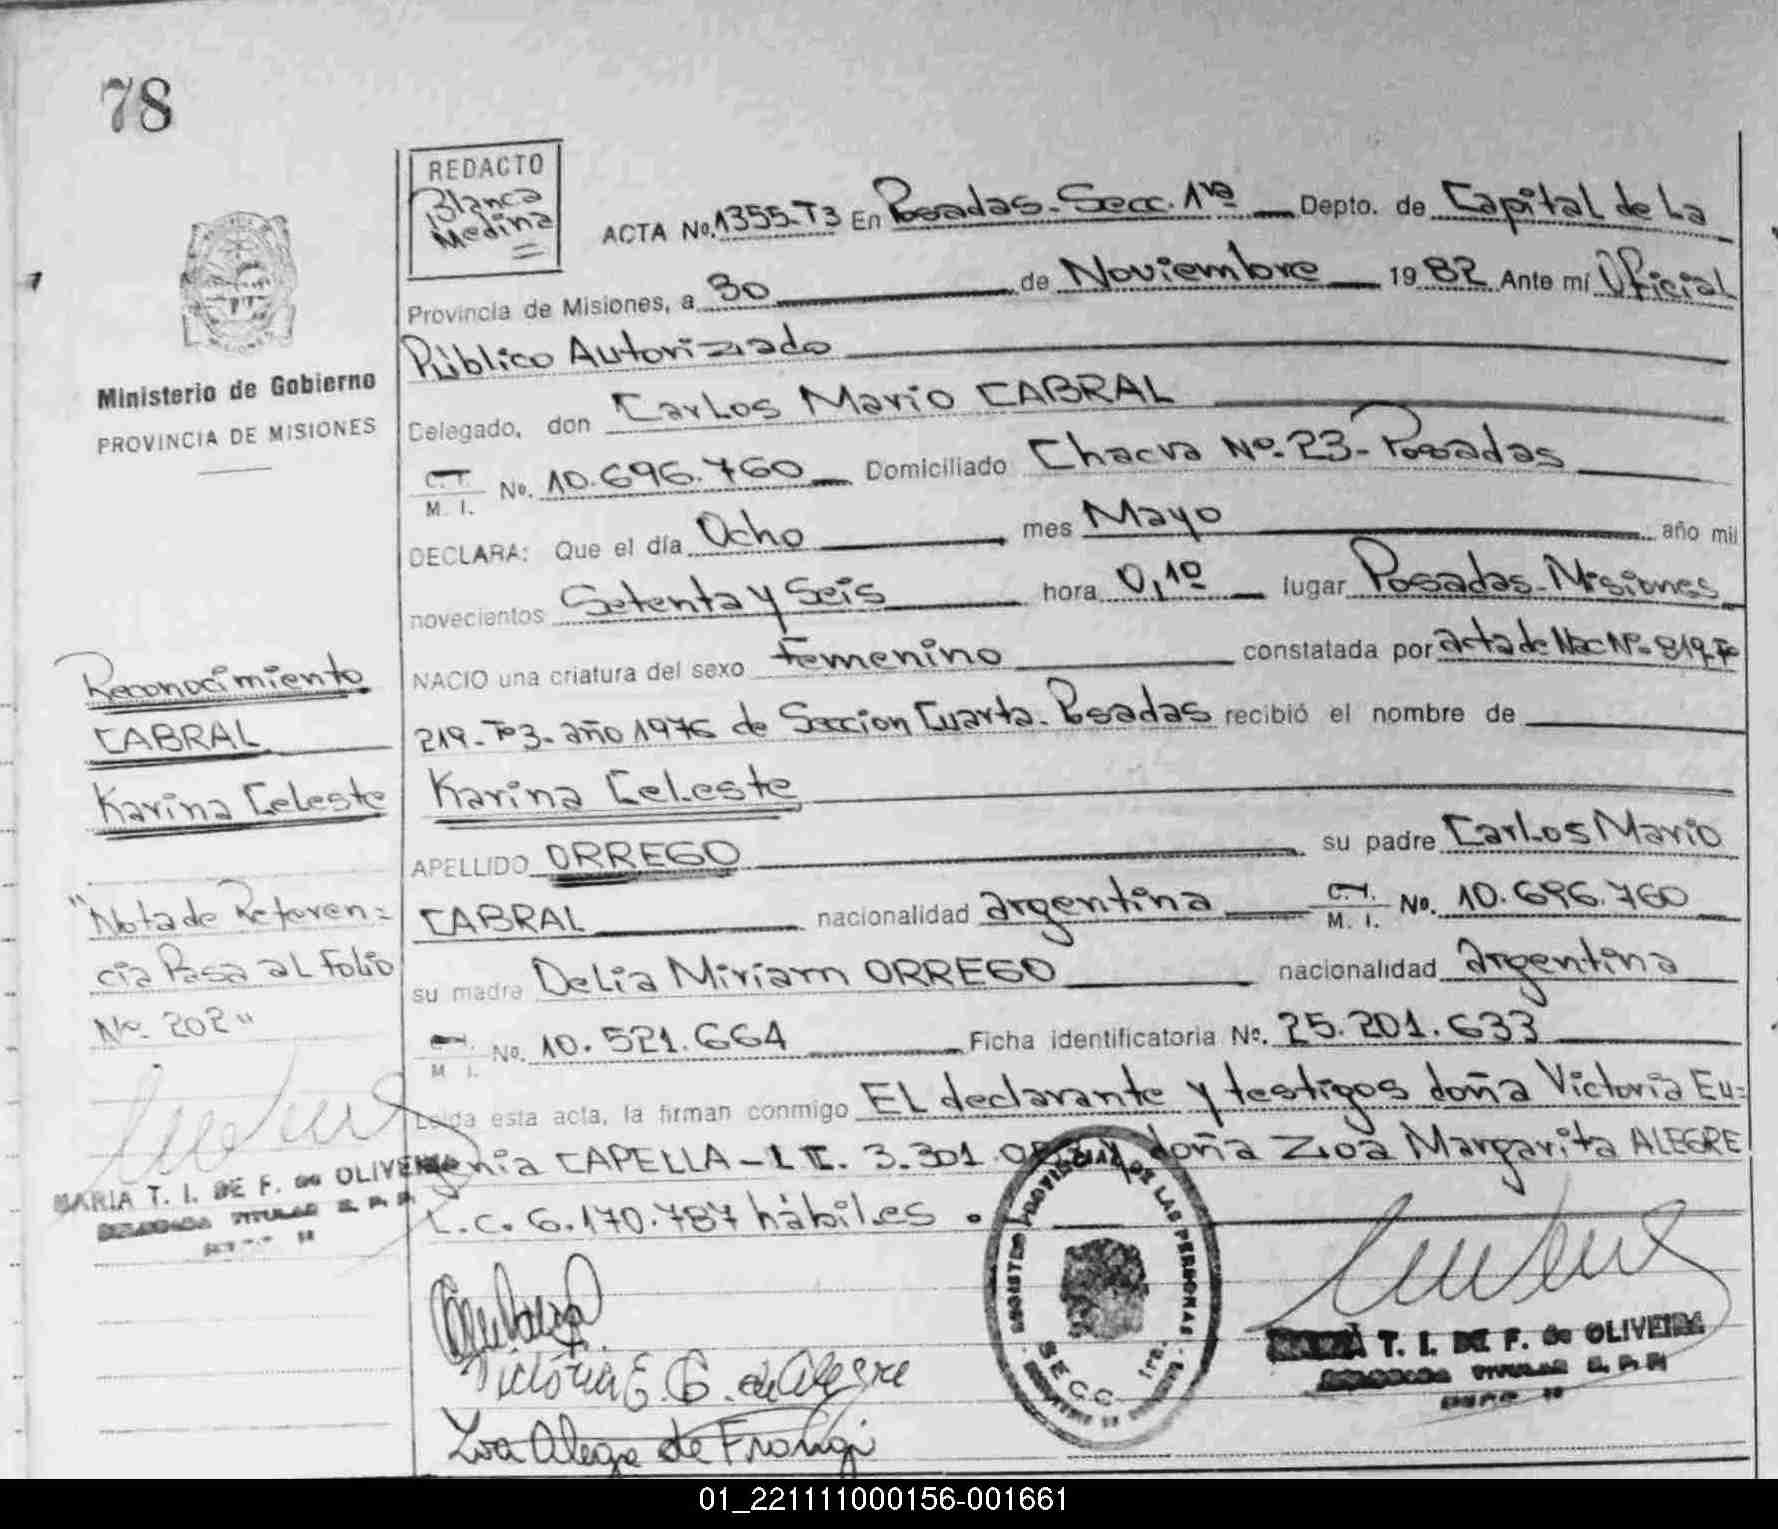 78
REDACTO
Blanca
Medina
ACTA No. 1355-T3 En Posadas-Secc. 1ra Depto. de Capital de La
Provincia de Misiones, a 30 de Noviembre 1982 Ante mí Oficial
Público Autorizado
Delegado, don Carlos Mario CABRAL
C.I. M. I. No. 10.696.760 Domiciliado Chacra Nº 23-Posadas
DECLARA: Que el día Ocho mes Mayo año mil
novecientos Setenta y Seis hora 0,10 lugar Posadas-Misiones
NACIO una criatura del sexo femenino constatada por acta de Nac Nº 819-Fº
219-Tº3-año 1976 de Seccion Cuarta-Posadas recibió el nombre de
Karina Celeste
APELLIDO ORREGO su padre Carlos Mario
CABRAL nacionalidad argentina C.I. M. I. No. 10.696.760
su madre Delia Miriam ORREGO nacionalidad argentina
M I. No. 10.521.664 Ficha identificatoria No. 25.201.633
Leída esta acta, la firman conmigo El declarante y testigos doña Victoria Eu=
genia CAPELLA-L.C. 3.301 y doña Zioa Margarita ALEGRE
L.C. 6.170.787 hábiles.
Ministerio de Gobierno
PROVINCIA DE MISIONES
Reconocimiento
CABRAL
Karina Celeste
"Nota de Referen=
cia Pasa al Folio
Nº 202"
MARIA T. I. DE F. de OLIVEIRA
DELEGADA TITULAR R. P. P.
Victoria E. C. de Alegre
Zoa Alegre de Frangi
REGISTRO PROVINCIAL DE LAS PERSONAS
SECC. 1ra.
MARIA T. I. DE F. de OLIVEIRA
DELEGADA TITULAR R. P. P.
01_221111000156-001661